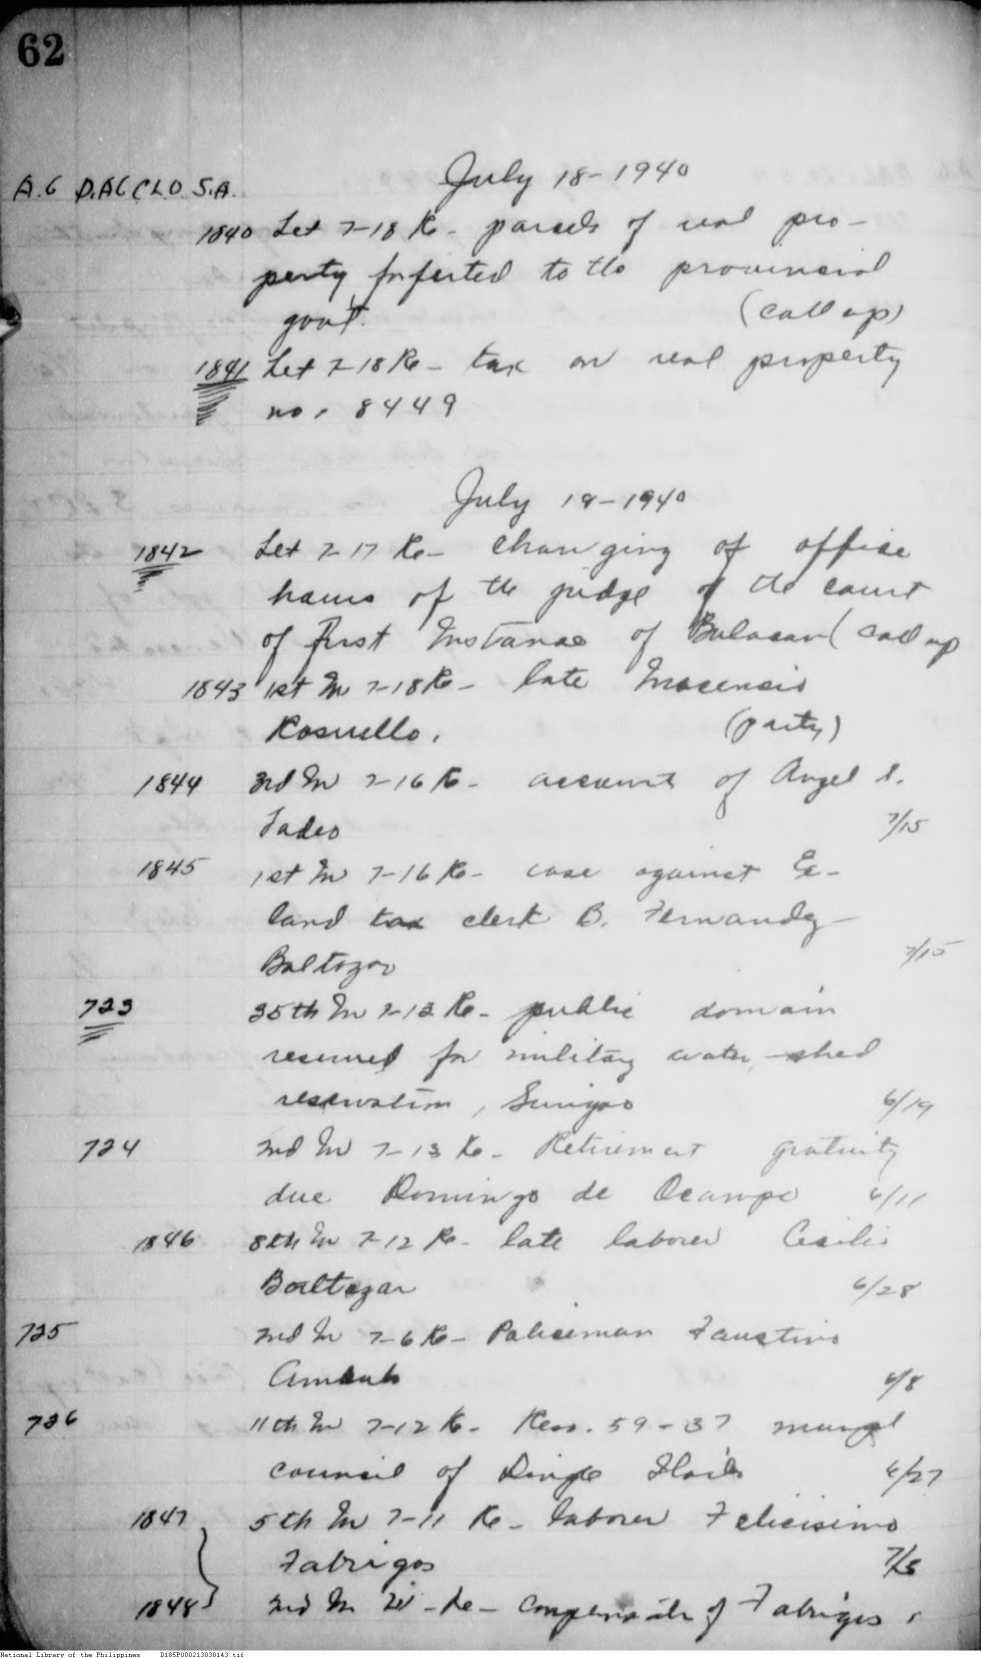 62
July 18-1940
A.G D.AG CLO S.A.
1840 Let 7-18 Re- parcels of real pro-
perty forfeited to the provincial
govt. (call up)
1841 Let 7-18 Re- tax on real property
no. 8449
July 19-1940
1842 Let 7-17 Re- changing of office
hours of the judge of the court
of First Instance of Bulacan (call up
1843 1st In 7-18 Re- late Inocencio
(party)
1844 3rd In 7-16 Re- account of Angel S.
Tadeo 7/15
1845 1st In 7-16 Re- case against Ex-
land tax clerk B. Fernandez
Baltazar 7/15
723 35th In 7-12 Re- public domain
reserved for military water-shed
reservation, Surigao 6/19
724 2nd In 7-13 Re- Retirement gratuity
due Domingo de Ocampo 6/11
1846 8th In 7-12 Re- late laborer Cecilio
Baltazar 6/28
725 2nd In 7-6 Re- Policeman Faustino
6/8
726 11th In 7-12 Re- Res. 59-37 munpl
council of Dingle Iloilo 6/27
1847 5th In 7-11 Re- laborer Felicisimo
Fabrigas 7/5
1848 2nd In Re- compensation of Fabrigas.
National Library of the Philippines D185P000213030143.tif